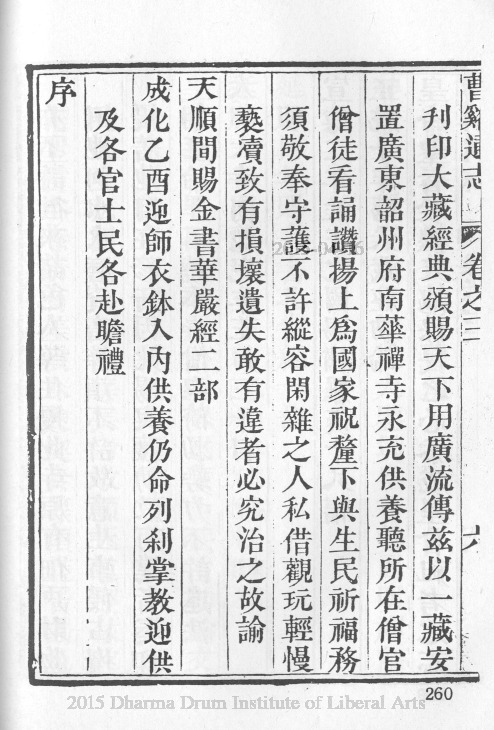 曹谿通志 卷之三 六
刋印大藏經典頒賜天下用廣流傳茲以一藏安
置廣東韶州府南華禪寺永充供養聽所在僧官
僧徒看誦讚揚上爲國家祝釐下與生民祈福務
須敬奉守護不許縱容閑雜之人私借觀玩輕慢
褻凟致有損壞遺失敢有違者必究治之故諭
天順間賜金書華嚴經一部
成化乙酉迎師衣鉢入內供養仍命列刹掌教迎供
及各官士民各赴瞻禮
序
260
2015 Dharma Drum Institute of Liberal Arts